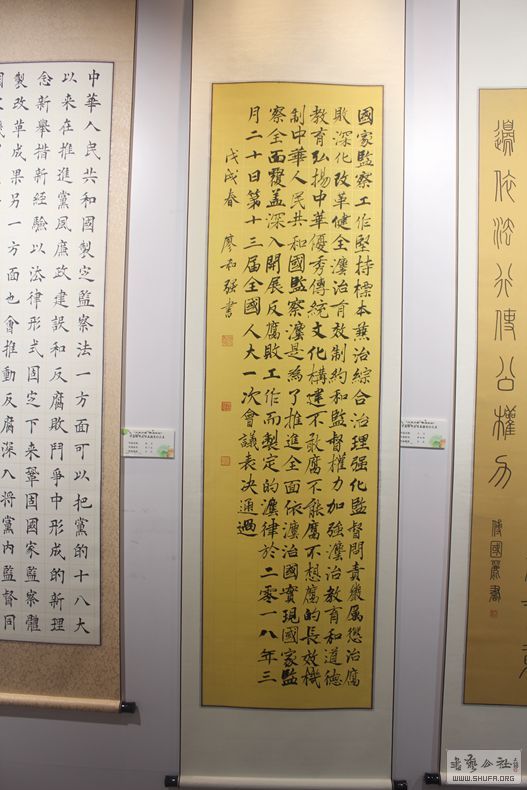 國家監察工作堅持標本兼治綜合治理强化監督問責嚴厲懲治腐
敗深化改革健全灋治有效制約和監督權力加强灋治教育和道德
教育弘揚中華優秀傳統文化構建不敢腐不能腐不想腐的長效機
制中華人民共和國監察灋是為了推進全面依灋治國實現國家監
察全面覆蓋深入開展反腐敗工作而製定的灋律於二零一八年三
月二十日第十三届全國人大一次會議表决通過
戊戌春 廖和强書
中華人民共和國製定監察法一方面可以把黨的十八大
以来在推進黨風廉政建設和反腐敗鬥爭中形成的新理
念新舉措新經驗以法律形式固定下来鞏固國家監察體
製改革成果另一方面也會推動反腐深入將黨内監督同
邊依法行使公權力
傅國麗書
書藝公社
WWW.SHUFA.ORG